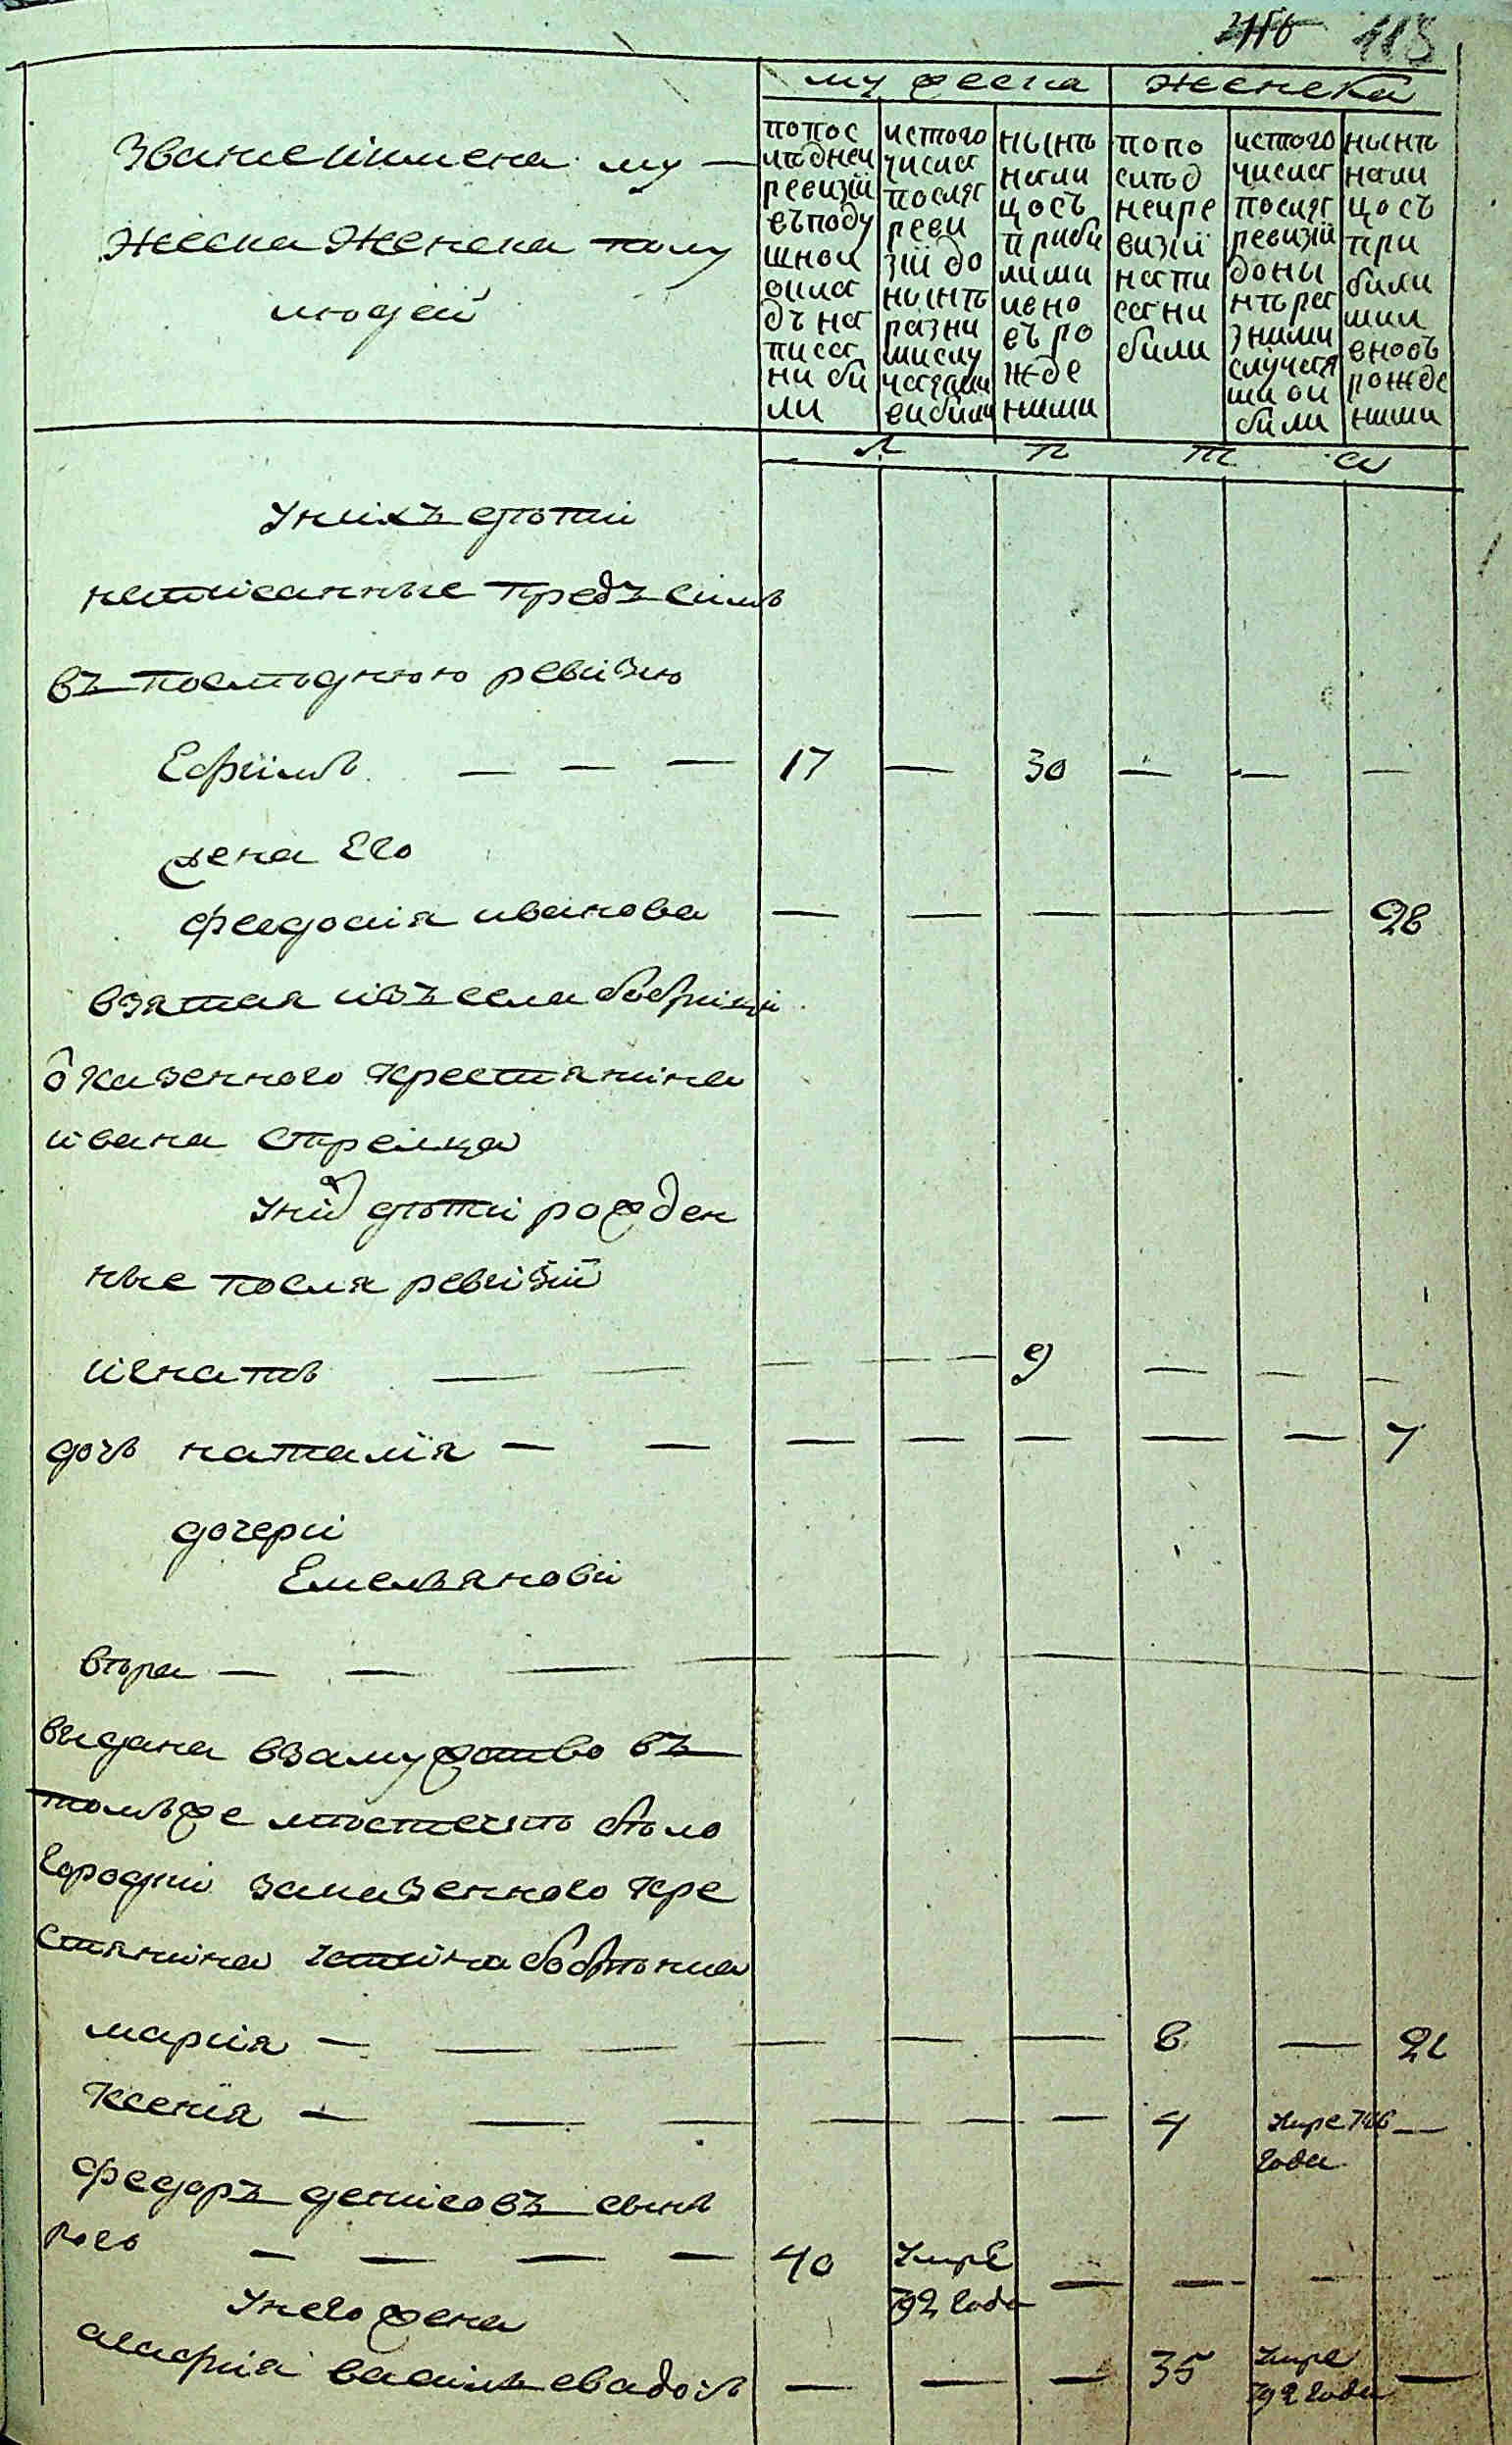 418
му жеска женска
Звание иимена му
жеска женска полу
людей
попос
лѣдней
ревизіи
въподу
шной
окла
дъ на
писа
ни би
ли
истого
числа
посля
реви
зіи до
нынѣ
разни
ми слу
чаями
вибили
нынѣ
нали
цосъ
приби
лими
ивно
въ ро
жде
ними
попо
слѣд
нейре
визіи
напи
сани
били
истого
числа
посля
ревизіи
доны
нѣ ра
зними
случая
ми ви
били
нынѣ
нали
цосъ
при
били
ми
вновъ
рожде
ними
л ѣ т а
Унихъ дѣти
написанные предъ симъ
въ последнюю ревизию
Ефимъ — — — 17 — 30 — — —
жена Его
феодосия иванова — — — — — 28
взятая изъ села бобрици
о казенного крестянина
ивана стрелца
Уних дѣти рожден
ные посля ревизии
игнатъ — — — — — 9 — — —
дочь наталия — — — — — — — 7
дочери
Емельянови
вѣра — — —
выдана взамужство въ
томъже мѣстечкѣ бѣло
городки заказенного кре
стянина
мария — — — — — — 8 — 21
Ксения — — — — — — 4 Умре 786 —
года
федоръ денисовъ сынъ
— — — — 40 Умре — — — —
792 года
Унего жена
агафия васильевадочь — — — 35 Умре —
792 года